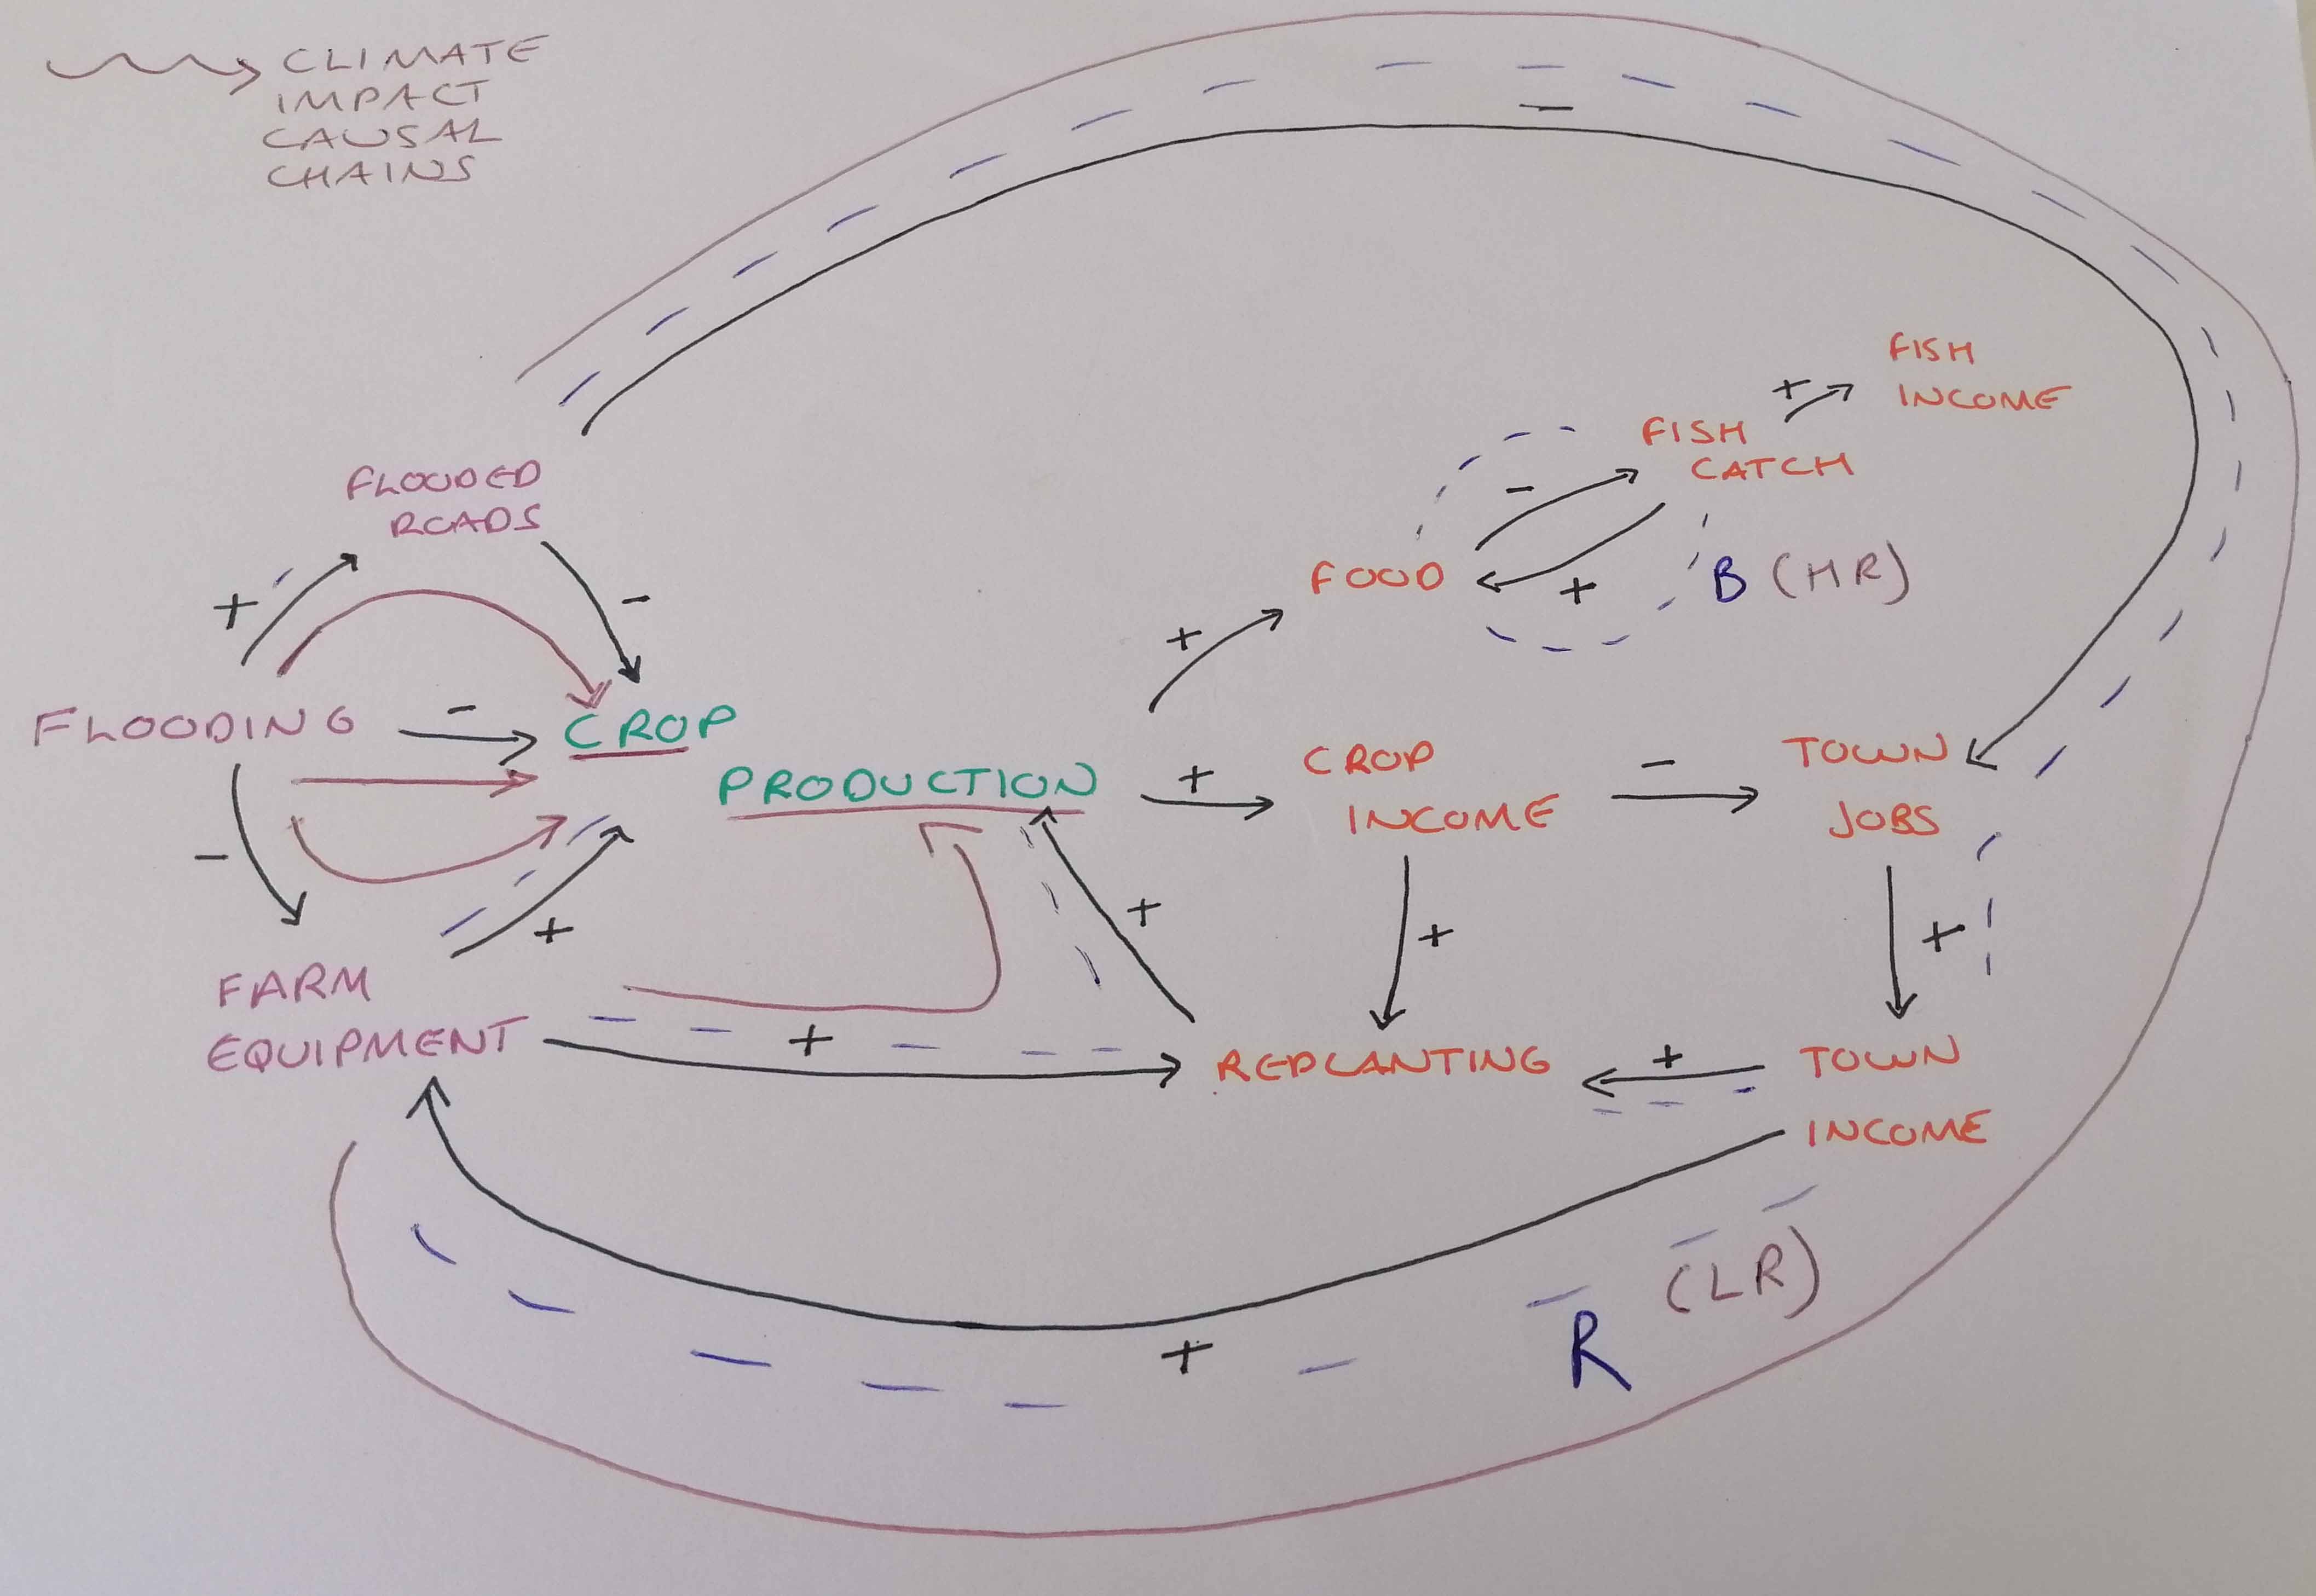 CLIMATE
IMPACT
CAUSAL
CHAINS
-
FISH
INCOME
+
FISH
CATCH
-
FLOODED
ROADS
FOOD
+
B (HR)
+
-
+
FLOODING
-
CROP
PRODUCTION
+
CROP
INCOME
-
TOWN
JOBS
-
+
+
+
+
FARM
EQUIPMENT
+
REPLANTING
+
TOWN
INCOME
+
R
(LR)